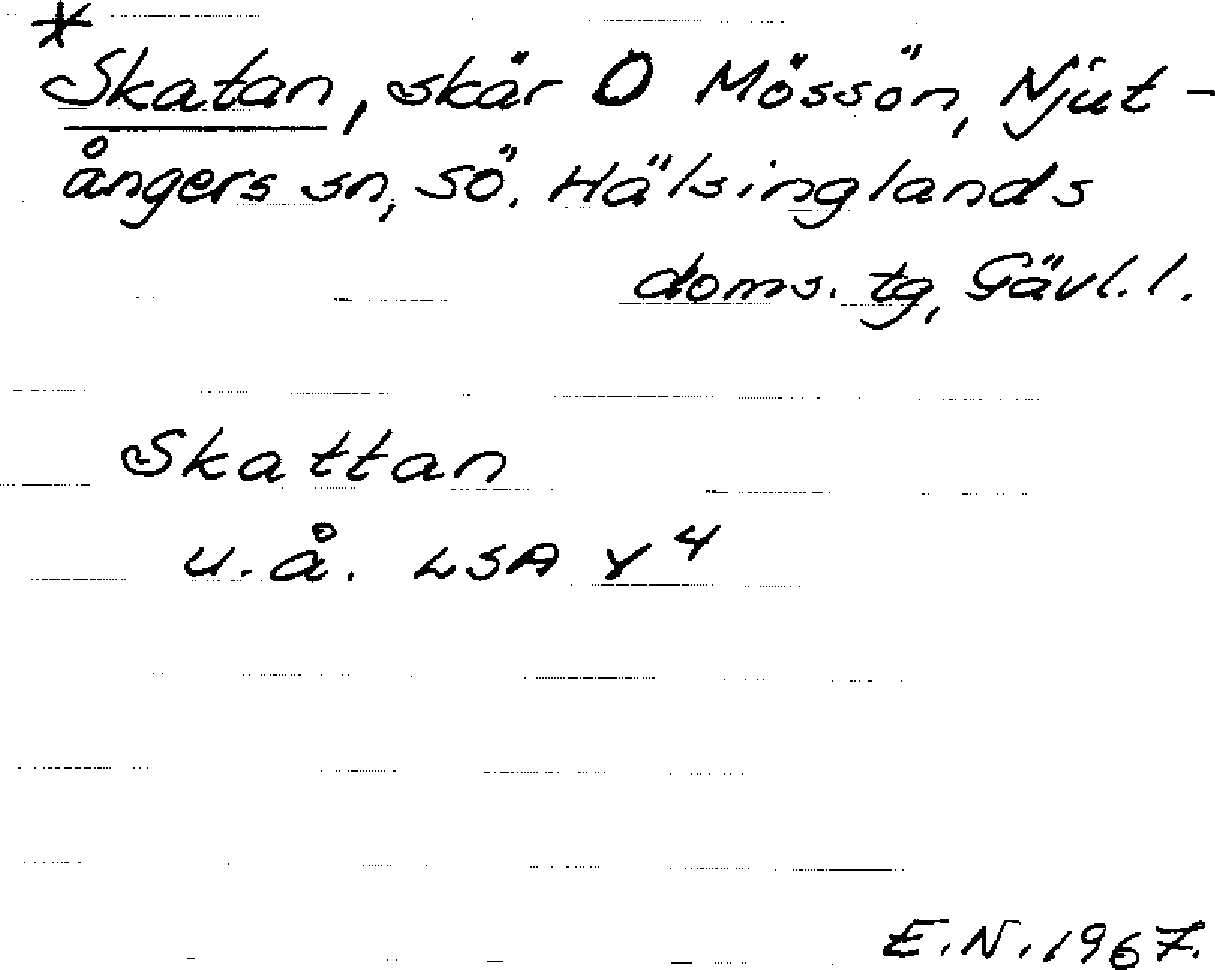 *
Skatan, skär Ö Mössön, Njut-
ångers sn, sö. Hälsinglands
doms. tg, Gävl. l.
Skattan
u.å. LSA Y 4
E.N. 1967.